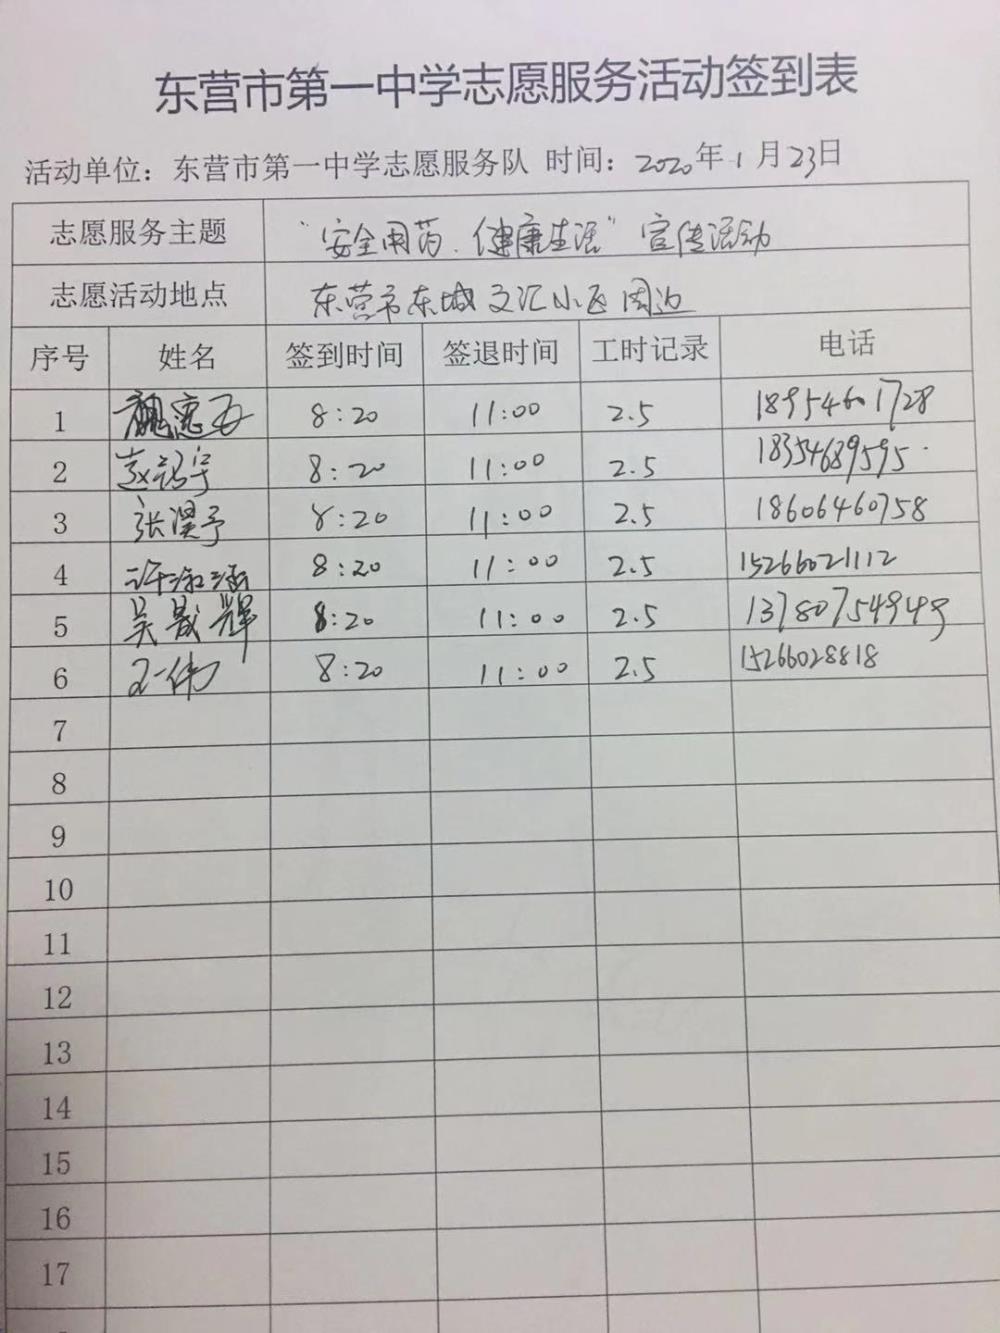 东营市第一中学志愿服务活动签到表
活动单位：东营市第一中学志愿服务队 时间：2020年1月23日
志愿服务主题 “安全用药、健康生活”宣传活动
志愿活动地点 东营市东城文汇小区周边
序号 姓名 签到时间 签退时间 工时记录 电话
1 8:20 11:00 2.5 18954601728
2 赵 宇 8:20 11:00 2.5 18354689595
3 张淏予 8:20 11:00 2.5 18606460758
4 许 涵 8:20 11:00 2.5 15266021112
5 吴晟辉 8:20 11:00 2.5 13780754949
6 王一伟 8:20 11:00 2.5 15266028818
7
8
9
10
11
12
13
14
15
16
17